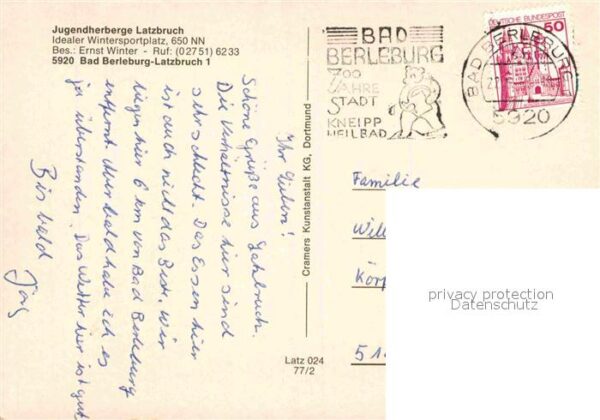 Jugendherberge Latzbruch
Idealer Wintersportplatz, 650 NN
Bes.: Ernst Winter - Ruf: (02751) 6233
5920 Bad Berleburg-Latzbruch 1
BAD
BERLEBURG
700
JAHRE
STADT
KNEIPP
HEILBAD
BAD BERLEBURG
5920
DEUTSCHE BUNDESPOST
50
Ihr Lieben!
Schöne Grüße aus Latzbruch.
Die Verhältnisse hier sind
sehr schlecht. Das Essen hier
ist auch nicht das Beste. Wir
liegen hier 6 km von Bad Berleburg
entfernt. Aber bald habe ich es
ja überstanden. Das Wetter hier ist gut
Bis bald
Jörg
Cramers Kunstanstalt KG, Dortmund
Latz 024
77/2
Familie
Will
Körp
51
privacy protection
www.Verkaufsberater.de